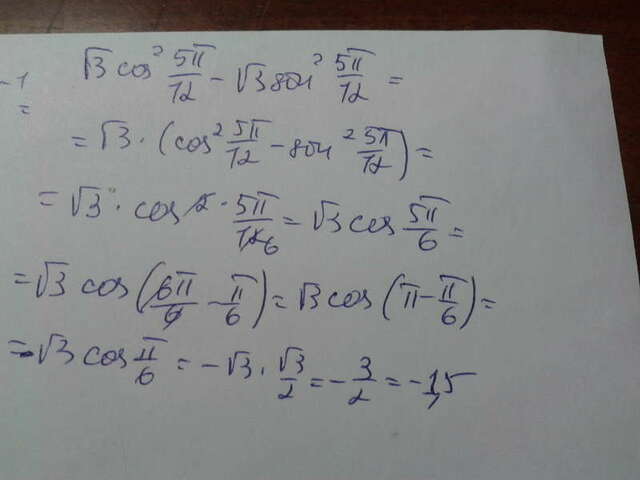 √3 cos² 5π/12 − √3 sin² 5π/12 =
−1
=
= √3 · (cos² 5π/12 − sin² 5π/12) =
= √3 · cos 2 · 5π/12 6 = √3 cos 5π/6 =
= √3 cos (6π/6 − π/6) = √3 cos (π − π/6) =
= −√3 cos π/6 = −√3 · √3/2 = −3/2 = −1,5